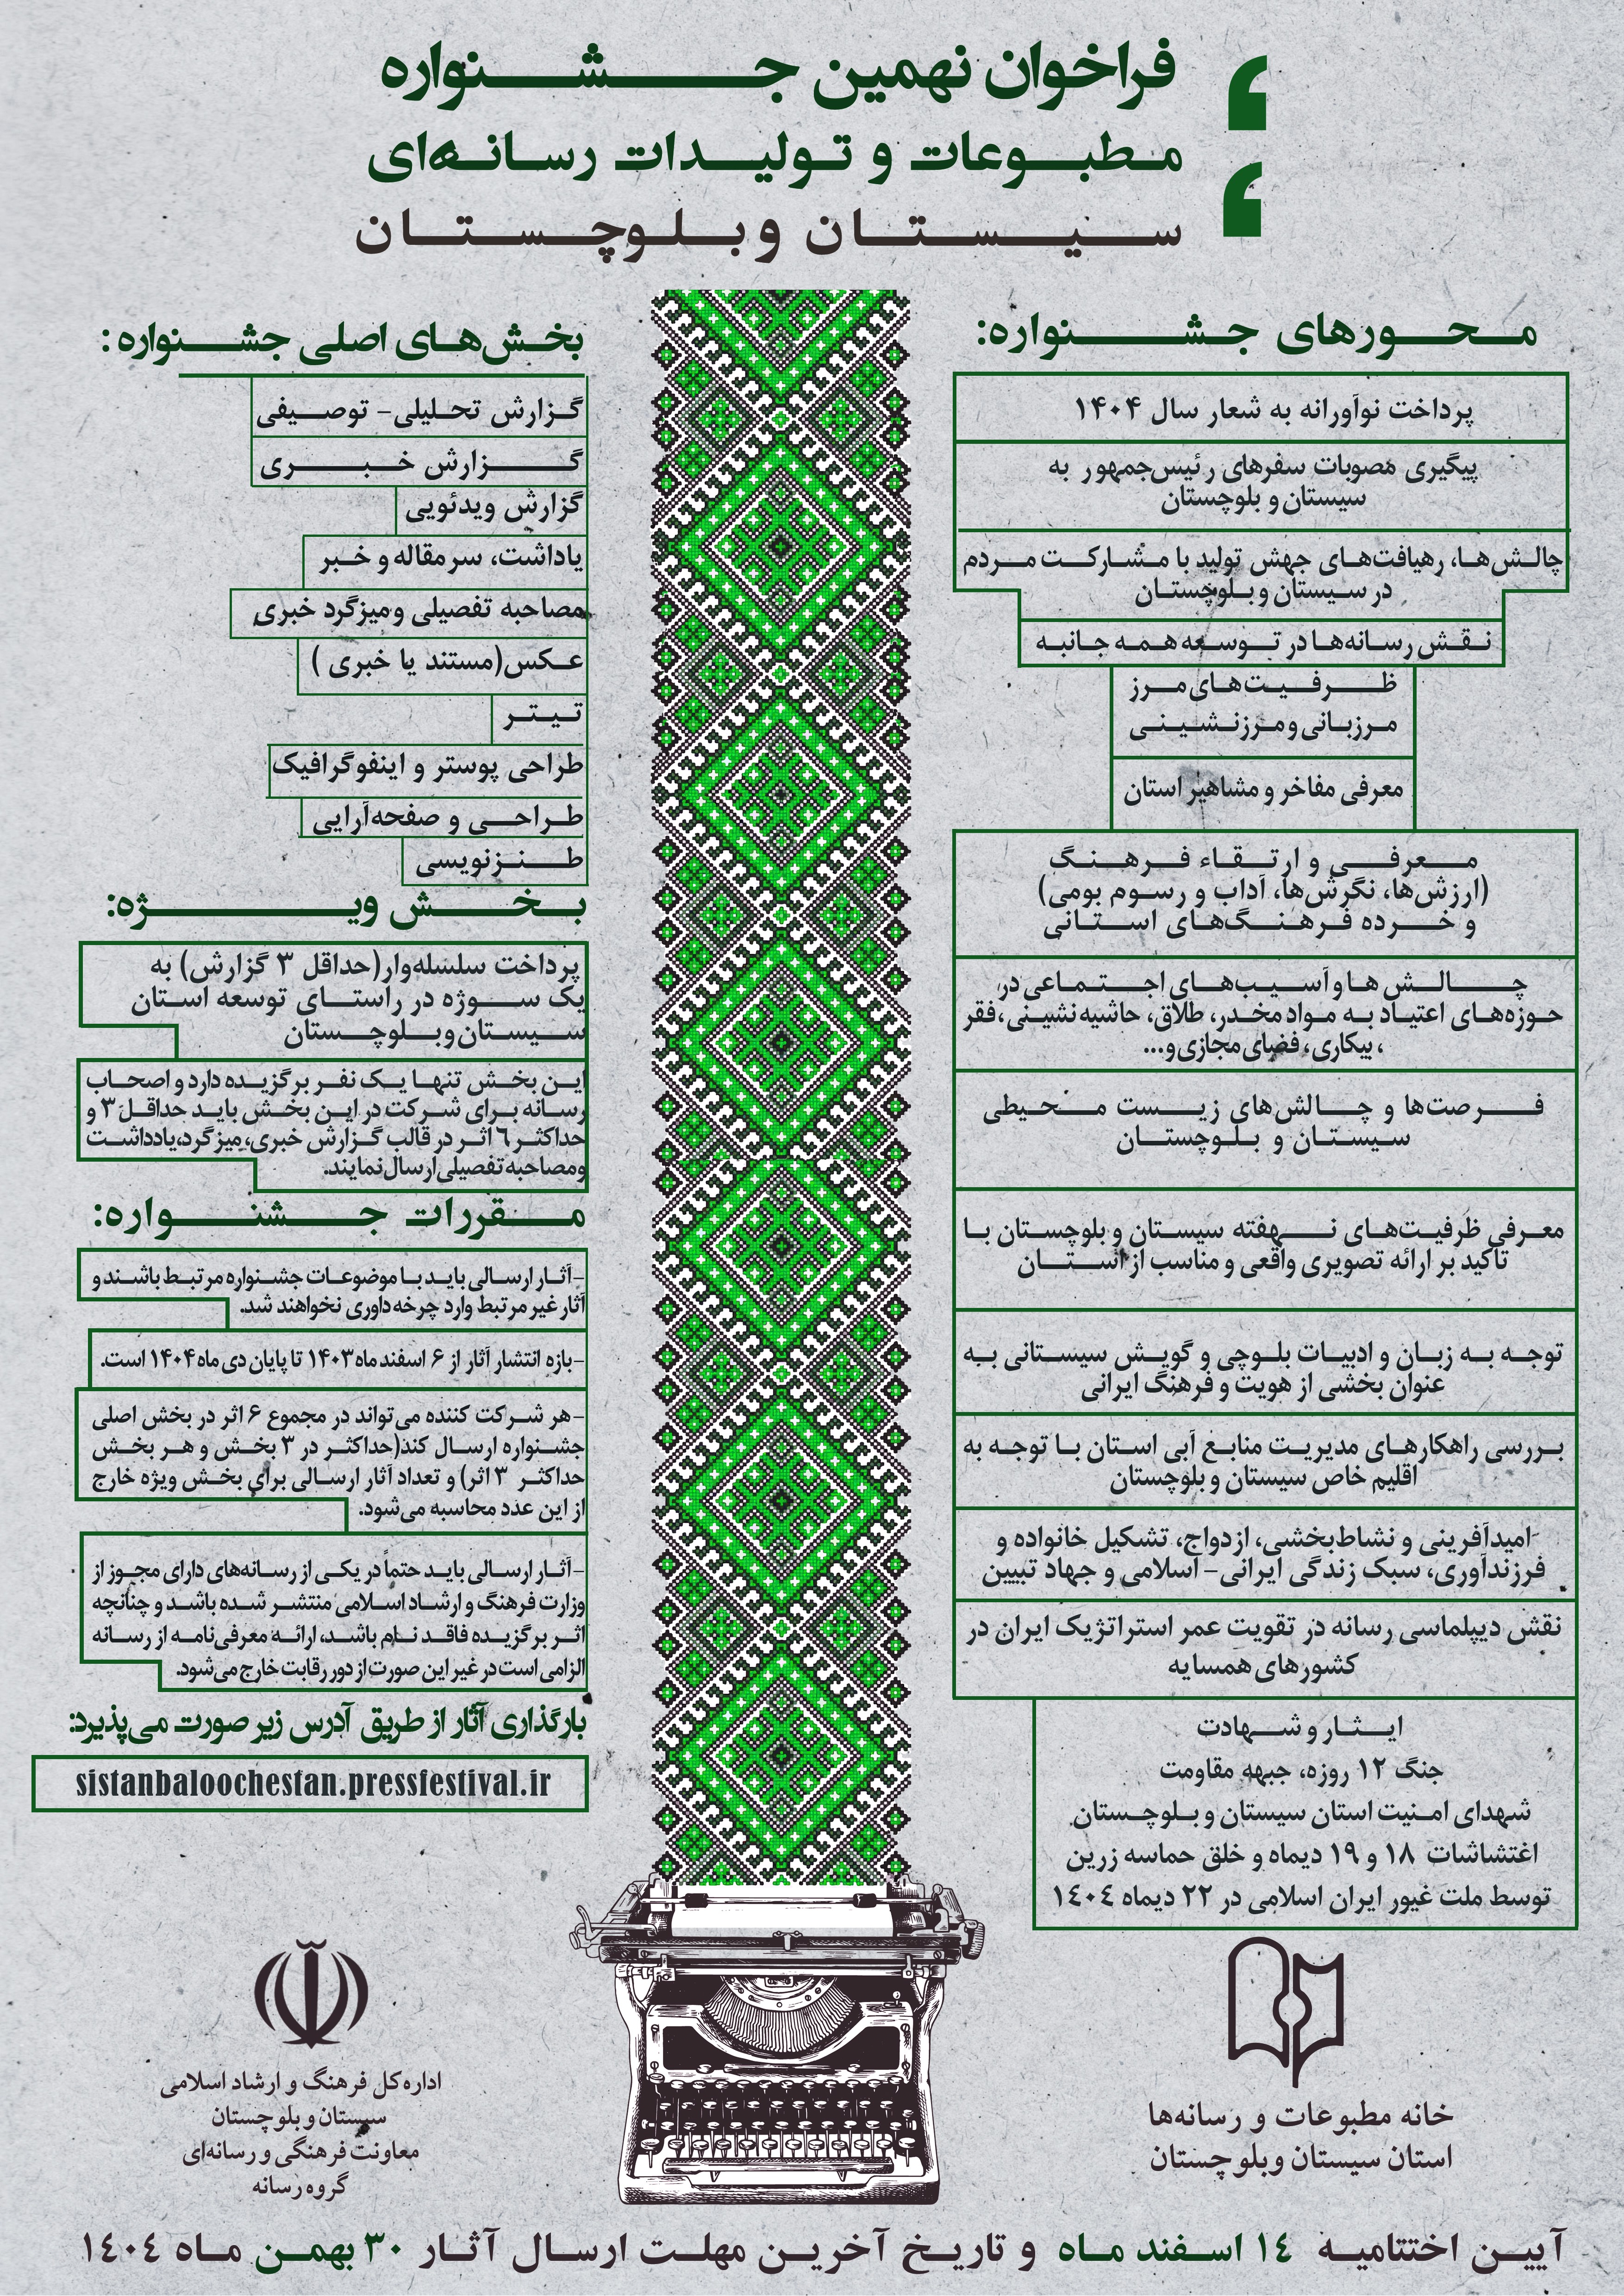 فراخوان نهمین جشنواره
مطبوعات و تولیدات رسانه‌ای
سیستان وبلوچستان
محورهای جشنواره:
پرداخت نوآورانه به شعار سال ۱۴۰۴
پیگیری مصوبات سفرهای رئیس‌جمهور به
سیستان و بلوچستان
چالش‌ها، رهیافت‌های جهش تولید با مشارکت مردم
در سیستان و بلوچستان
نقش رسانه‌ها در توسعه همه جانبه
ظرفیت‌های مرز
مرزبانی و مرزنشینی
معرفی مفاخر و مشاهیر استان
معرفی و ارتقاء فرهنگ
(ارزش‌ها، نگرش‌ها، آداب و رسوم بومی)
و خرده فرهنگ‌های استانی
چالش ها و آسیب‌های اجتماعی در
حوزه‌های اعتیاد به مواد مخدر، طلاق، حاشیه نشینی، فقر
، بیکاری، فضای مجازی و...
فرصت‌ها و چالش‌های زیست محیطی
سیستان و بلوچستان
معرفی ظرفیت‌های نهفته سیستان و بلوچستان با
تاکید بر ارائه تصویری واقعی و مناسب از استان
توجه به زبان و ادبیات بلوچی و گویش سیستانی به
عنوان بخشی از هویت و فرهنگ ایرانی
بررسی راهکارهای مدیریت منابع آبی استان با توجه به
اقلیم خاص سیستان و بلوچستان
امیدآفرینی و نشاط‌بخشی، ازدواج، تشکیل خانواده و
فرزندآوری، سبک زندگی ایرانی- اسلامی و جهاد تبیین
نقش دیپلماسی رسانه در تقویت عمر استراتژیک ایران در
کشورهای همسایه
ایثار و شهادت
جنگ ۱۲ روزه، جبهه مقاومت
شهدای امنیت استان سیستان و بلوچستان
اغتشاشات ۱۸ و ۱۹ دیماه و خلق حماسه زرین
توسط ملت غیور ایران اسلامی در ۲۲ دیماه ۱۴۰۴
بخش‌های اصلی جشنواره :
گزارش تحلیلی- توصیفی
گزارش خبری
گزارش ویدئویی
یاداشت، سرمقاله و خبر
مصاحبه تفصیلی و میزگرد خبری
عکس(مستند یا خبری )
تیتر
طراحی پوستر و اینفوگرافیک
طراحی و صفحه‌آرایی
طنزنویسی
بخش ویژه:
پرداخت سلسله‌وار(حداقل ۳ گزارش) به
یک سوژه در راستای توسعه استان
سیستان وبلوچستان
این بخش تنها یک نفر برگزیده دارد و اصحاب
رسانه برای شرکت در این بخش باید حداقل ۳ و
حداکثر ۶ اثر در قالب گزارش خبری، میزگرد،یادداشت
ومصاحبه تفصیلی ارسال نمایند.
مقررات جشنواره:
-آثار ارسالی باید با موضوعات جشنواره مرتبط باشند و
آثار غیر مرتبط وارد چرخه داوری نخواهند شد.
-بازه انتشار آثار از ۶ اسفند ماه ۱۴۰۳ تا پایان دی ماه ۱۴۰۴ است.
-هر شرکت کننده می‌تواند در مجموع ۶ اثر در بخش اصلی
جشنواره ارسال کند(حداکثر در ۳ بخش و هر بخش
حداکثر ۳ اثر) و تعداد آثار ارسالی برای بخش ویژه خارج
از این عدد محاسبه می‌شود.
-آثار ارسالی باید حتماً در یکی از رسانه‌های دارای مجوز از
وزارت فرهنگ و ارشاد اسلامی منتشر شده باشد و چنانچه
اثر برگزیده فاقد نام باشد، ارائه معرفی‌نامه از رسانه
الزامی است در غیر این صورت از دور رقابت خارج می‌شود.
بارگذاری آثار از طریق آدرس زیر صورت می‌پذیرد:
sistanbaloochestan.pressfestival.ir
خانه مطبوعات و رسانه‌ها
استان سیستان وبلوچستان
اداره کل فرهنگ و ارشاد اسلامی
سیستان و بلوچستان
معاونت فرهنگی و رسانه‌ای
گروه رسانه
آیین اختتامیه ۱۴ اسفند ماه و تاریخ آخرین مهلت ارسال آثار ۳۰ بهمن ماه ۱۴۰۴